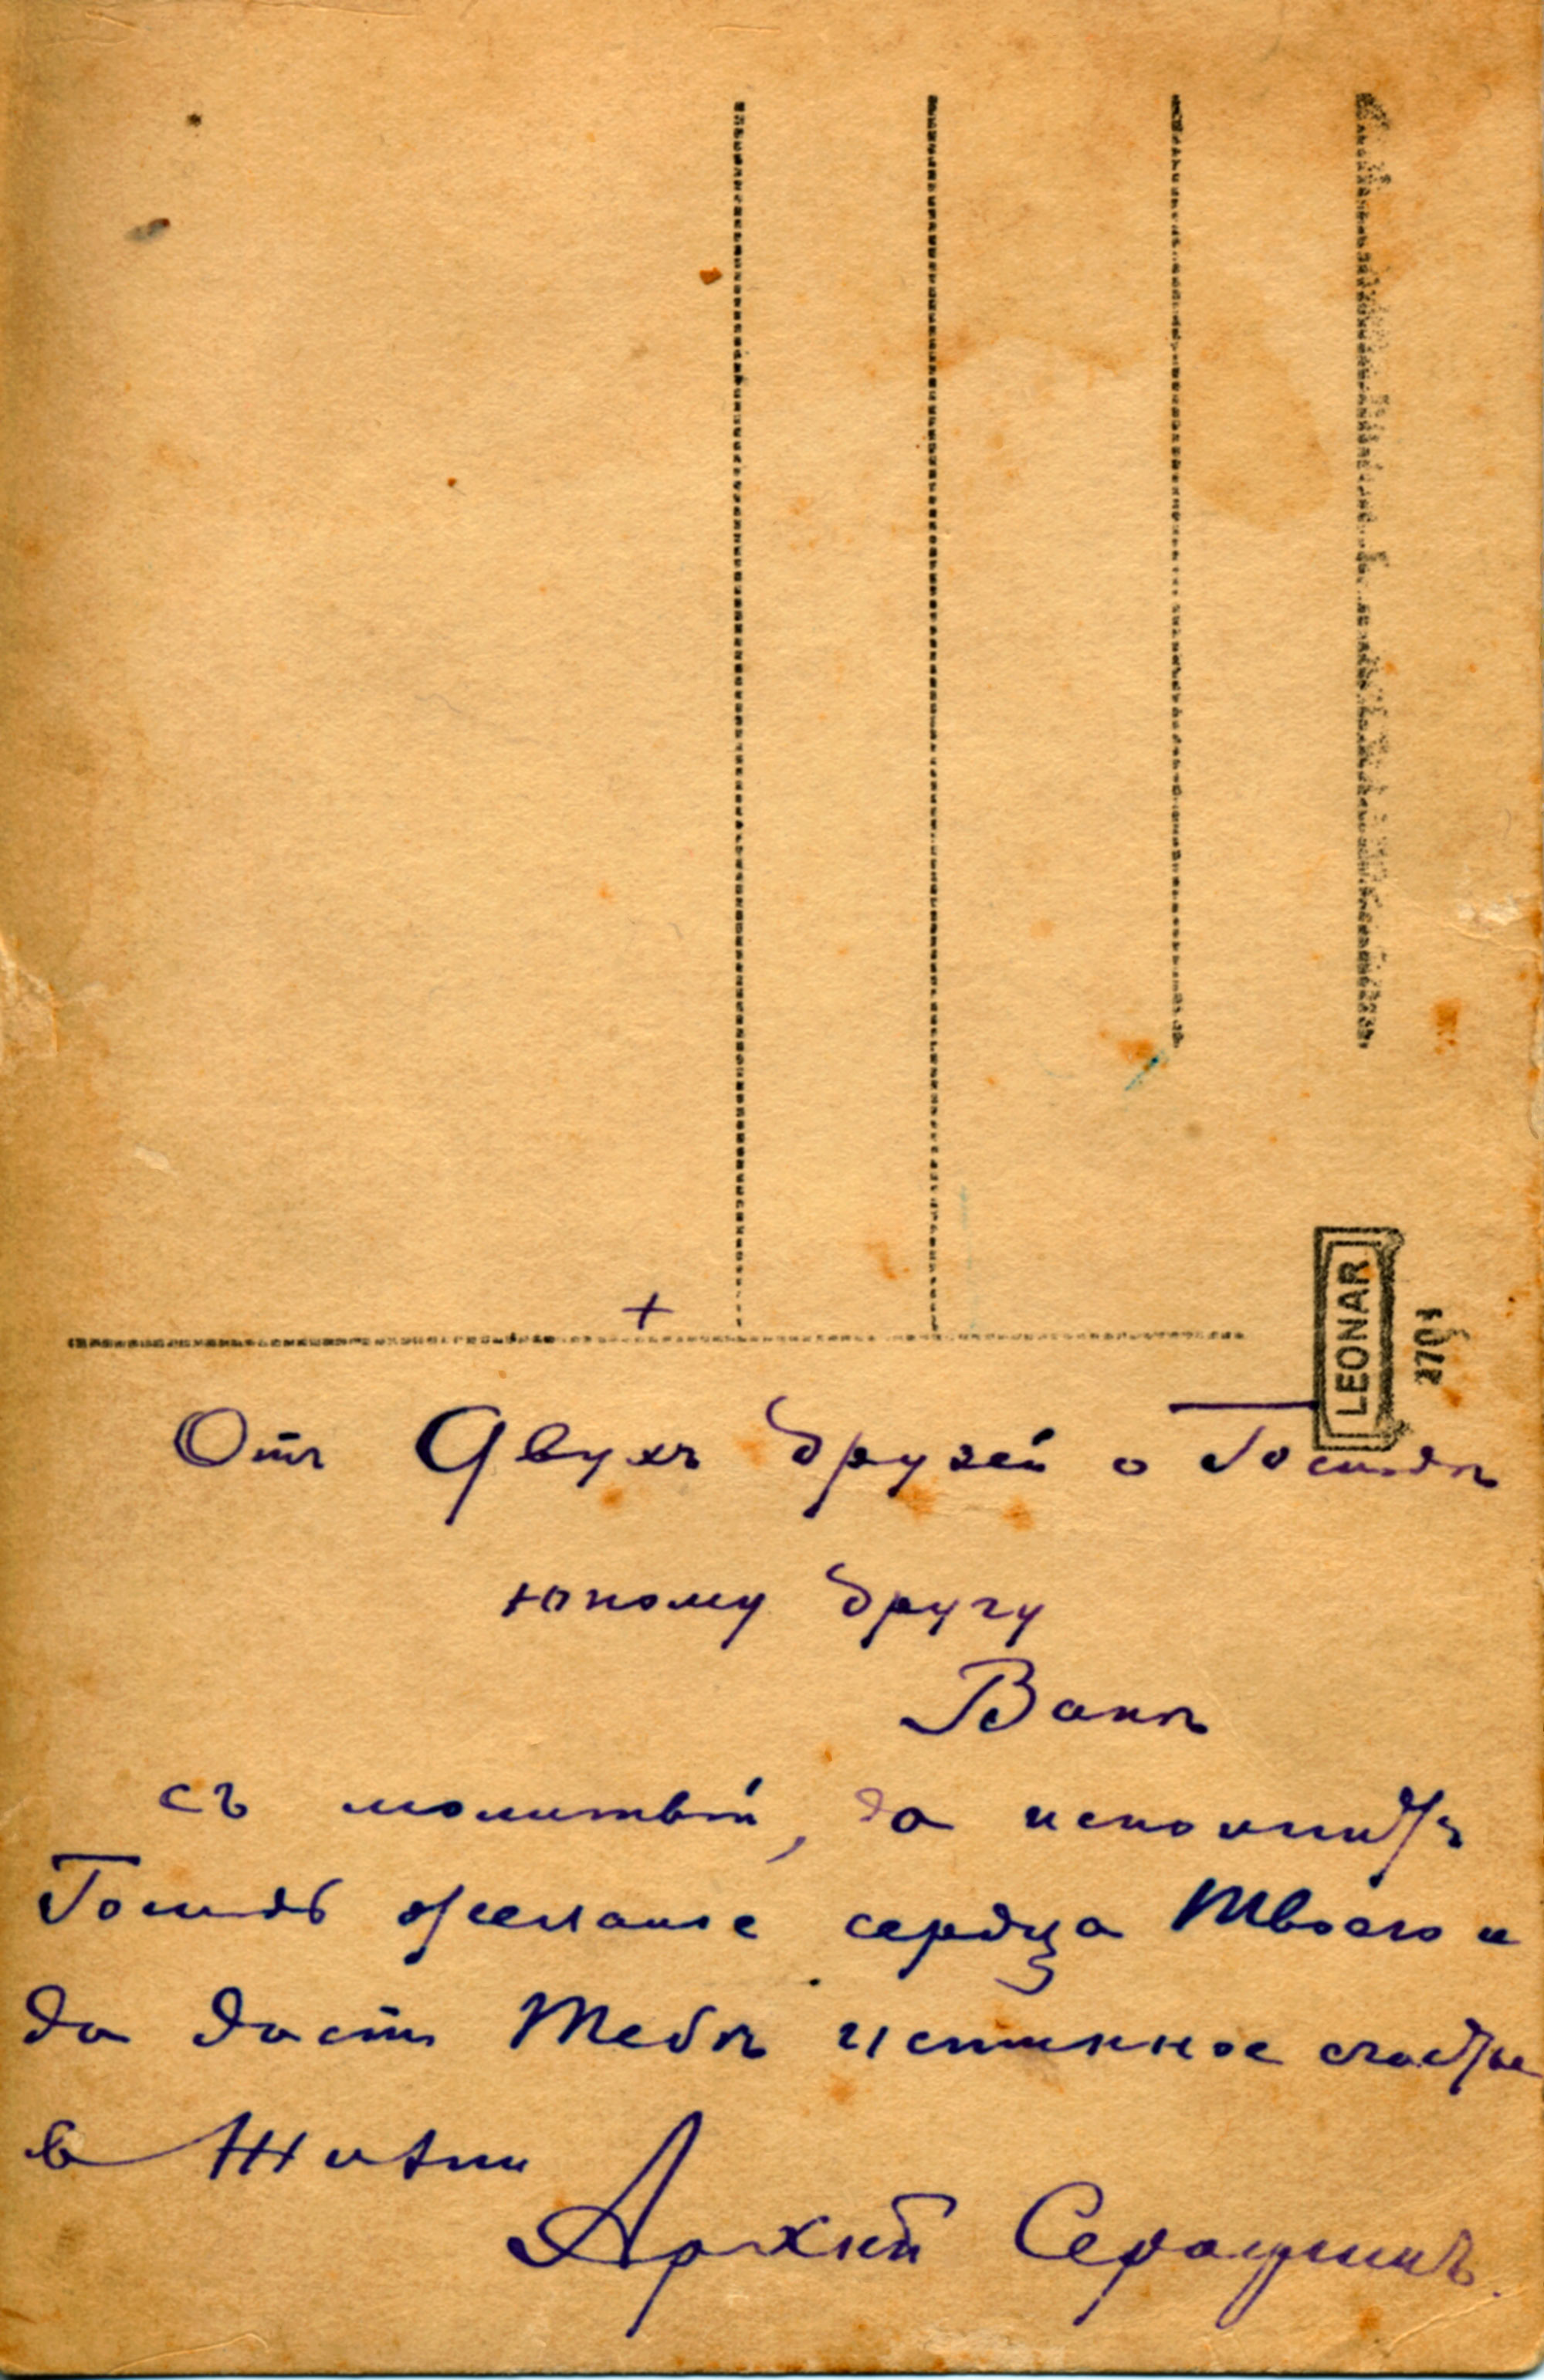 +
Отъ Двухъ друзей о Господѣ
юному другу
Ванѣ
съ молитвой, да исполнитъ
Господь желание сердца Твоего и
да дастъ Тебѣ истинное счастье
в Жизни
Архіеп Серафимъ.
LEONAR